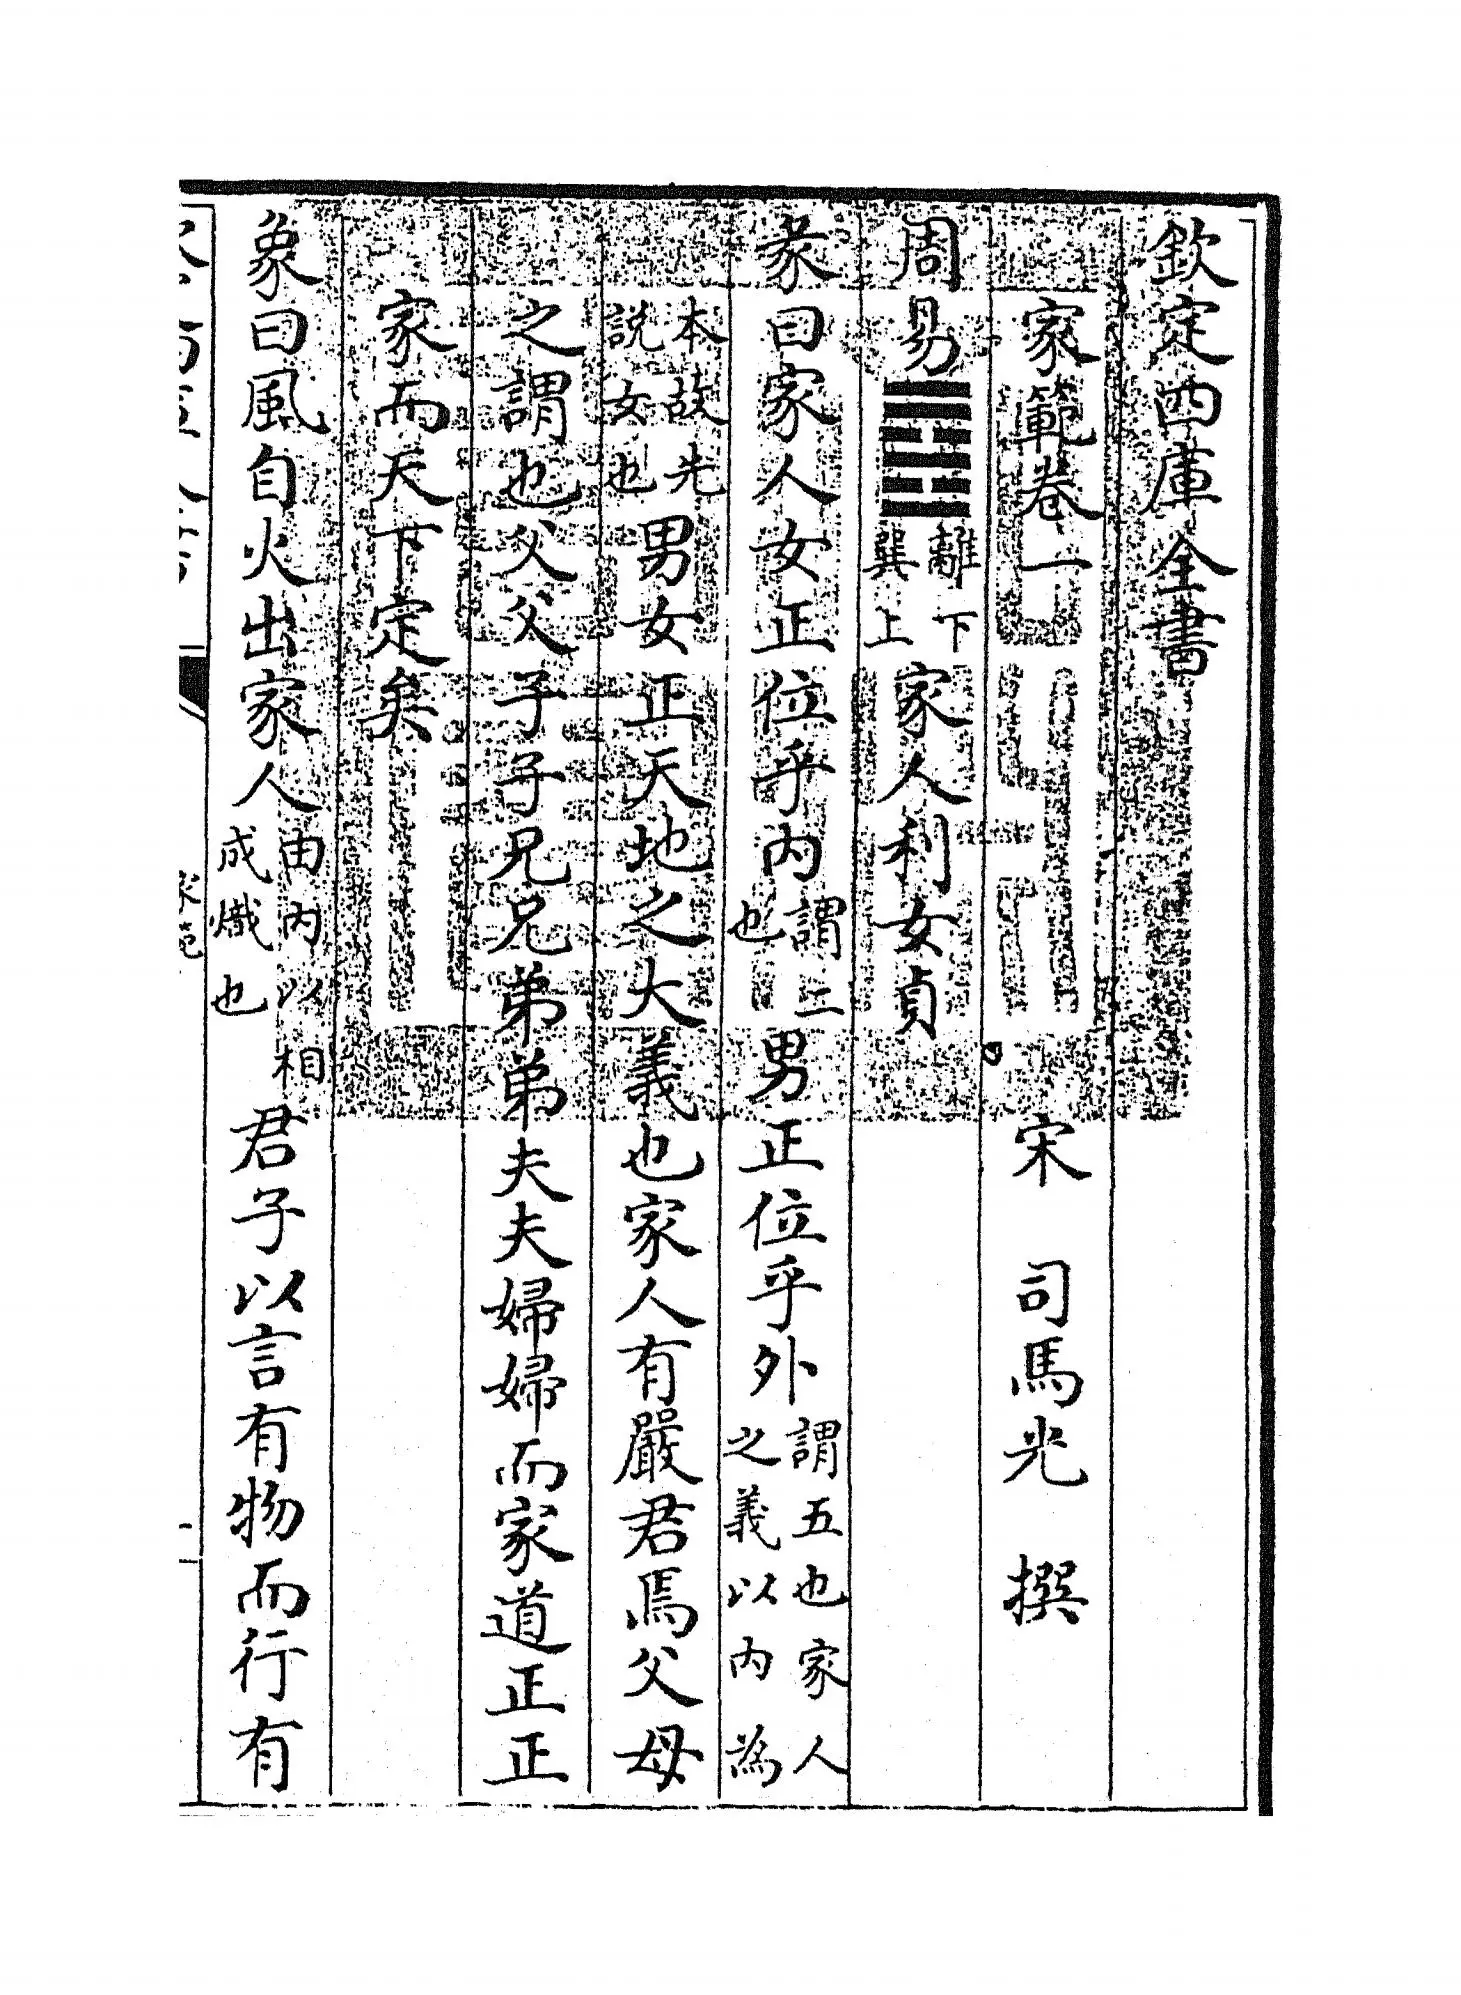 欽定四庫全書
家範卷一　宋　司馬光　撰
周易䷤離下巽上家人利女貞
彖曰家人女正位乎内謂二也男正位乎外謂五也家人之義以内為
本故先説女也男女正天地之大義也家人有嚴君焉父母
之謂也父父子子兄兄弟弟夫夫婦婦而家道正正
家而天下定矣
象曰風自火出家人由内以相成熾也君子以言有物而行有
家範